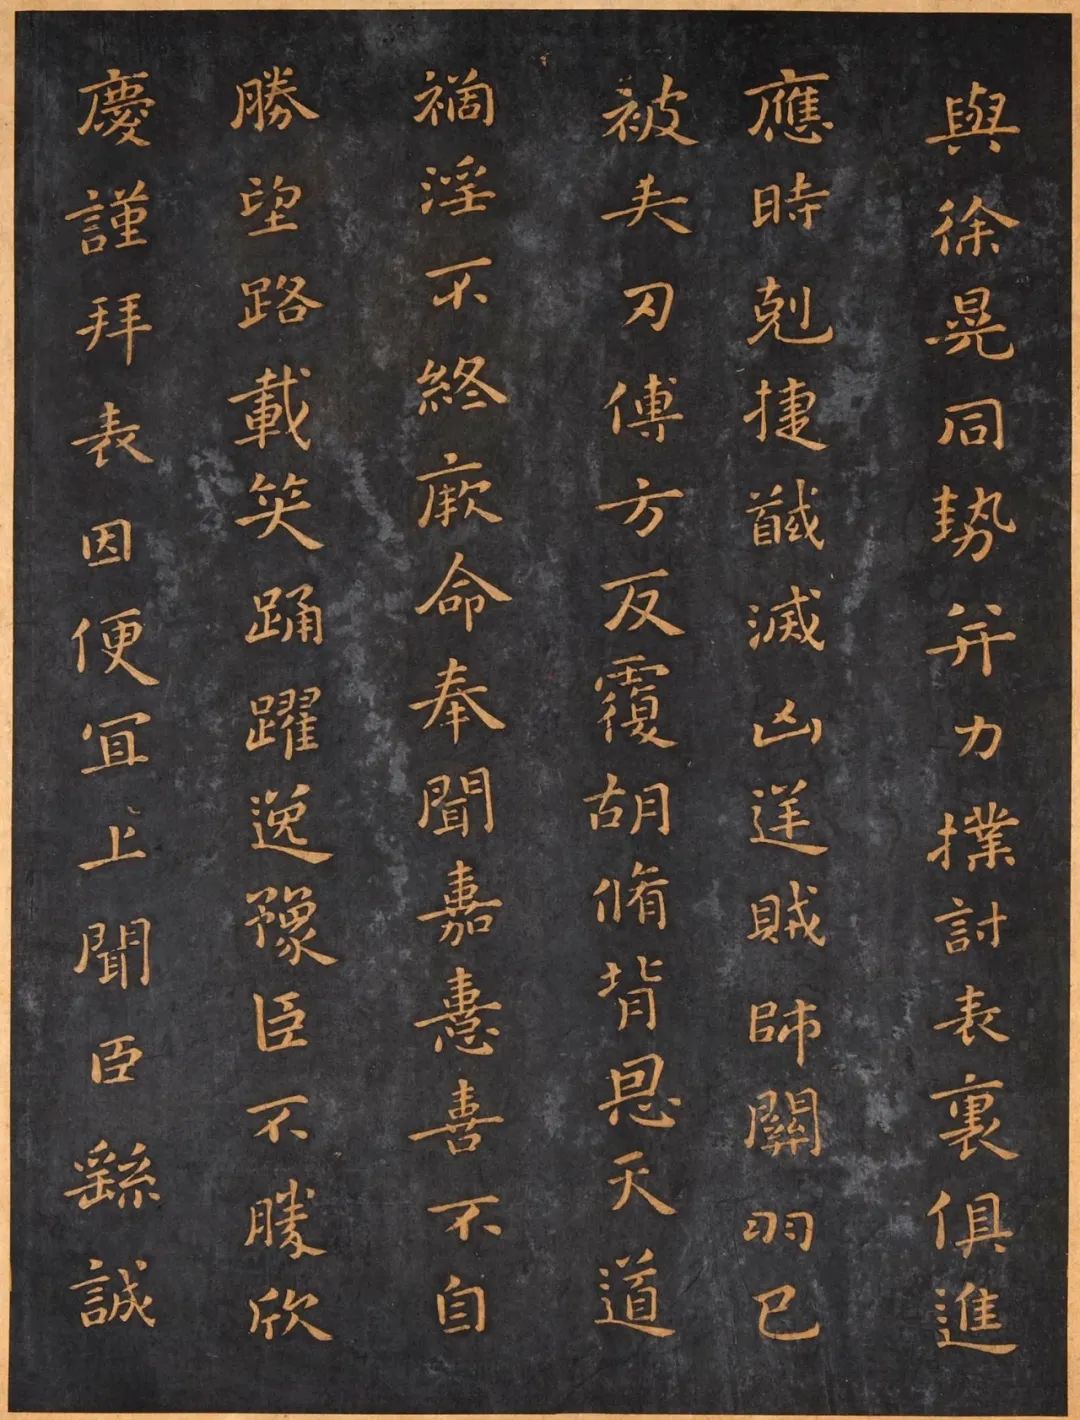 與徐晃同勢并力撲討表裏俱進
應時剋捷馘滅凶逆賊帥關羽已
被矢刃傅方反覆胡脩背恩天道
禍淫不終厥命奉聞嘉憙喜不自
勝望路載笑踊躍逸豫臣不勝欣
慶謹拜表因便宜上聞臣繇誠